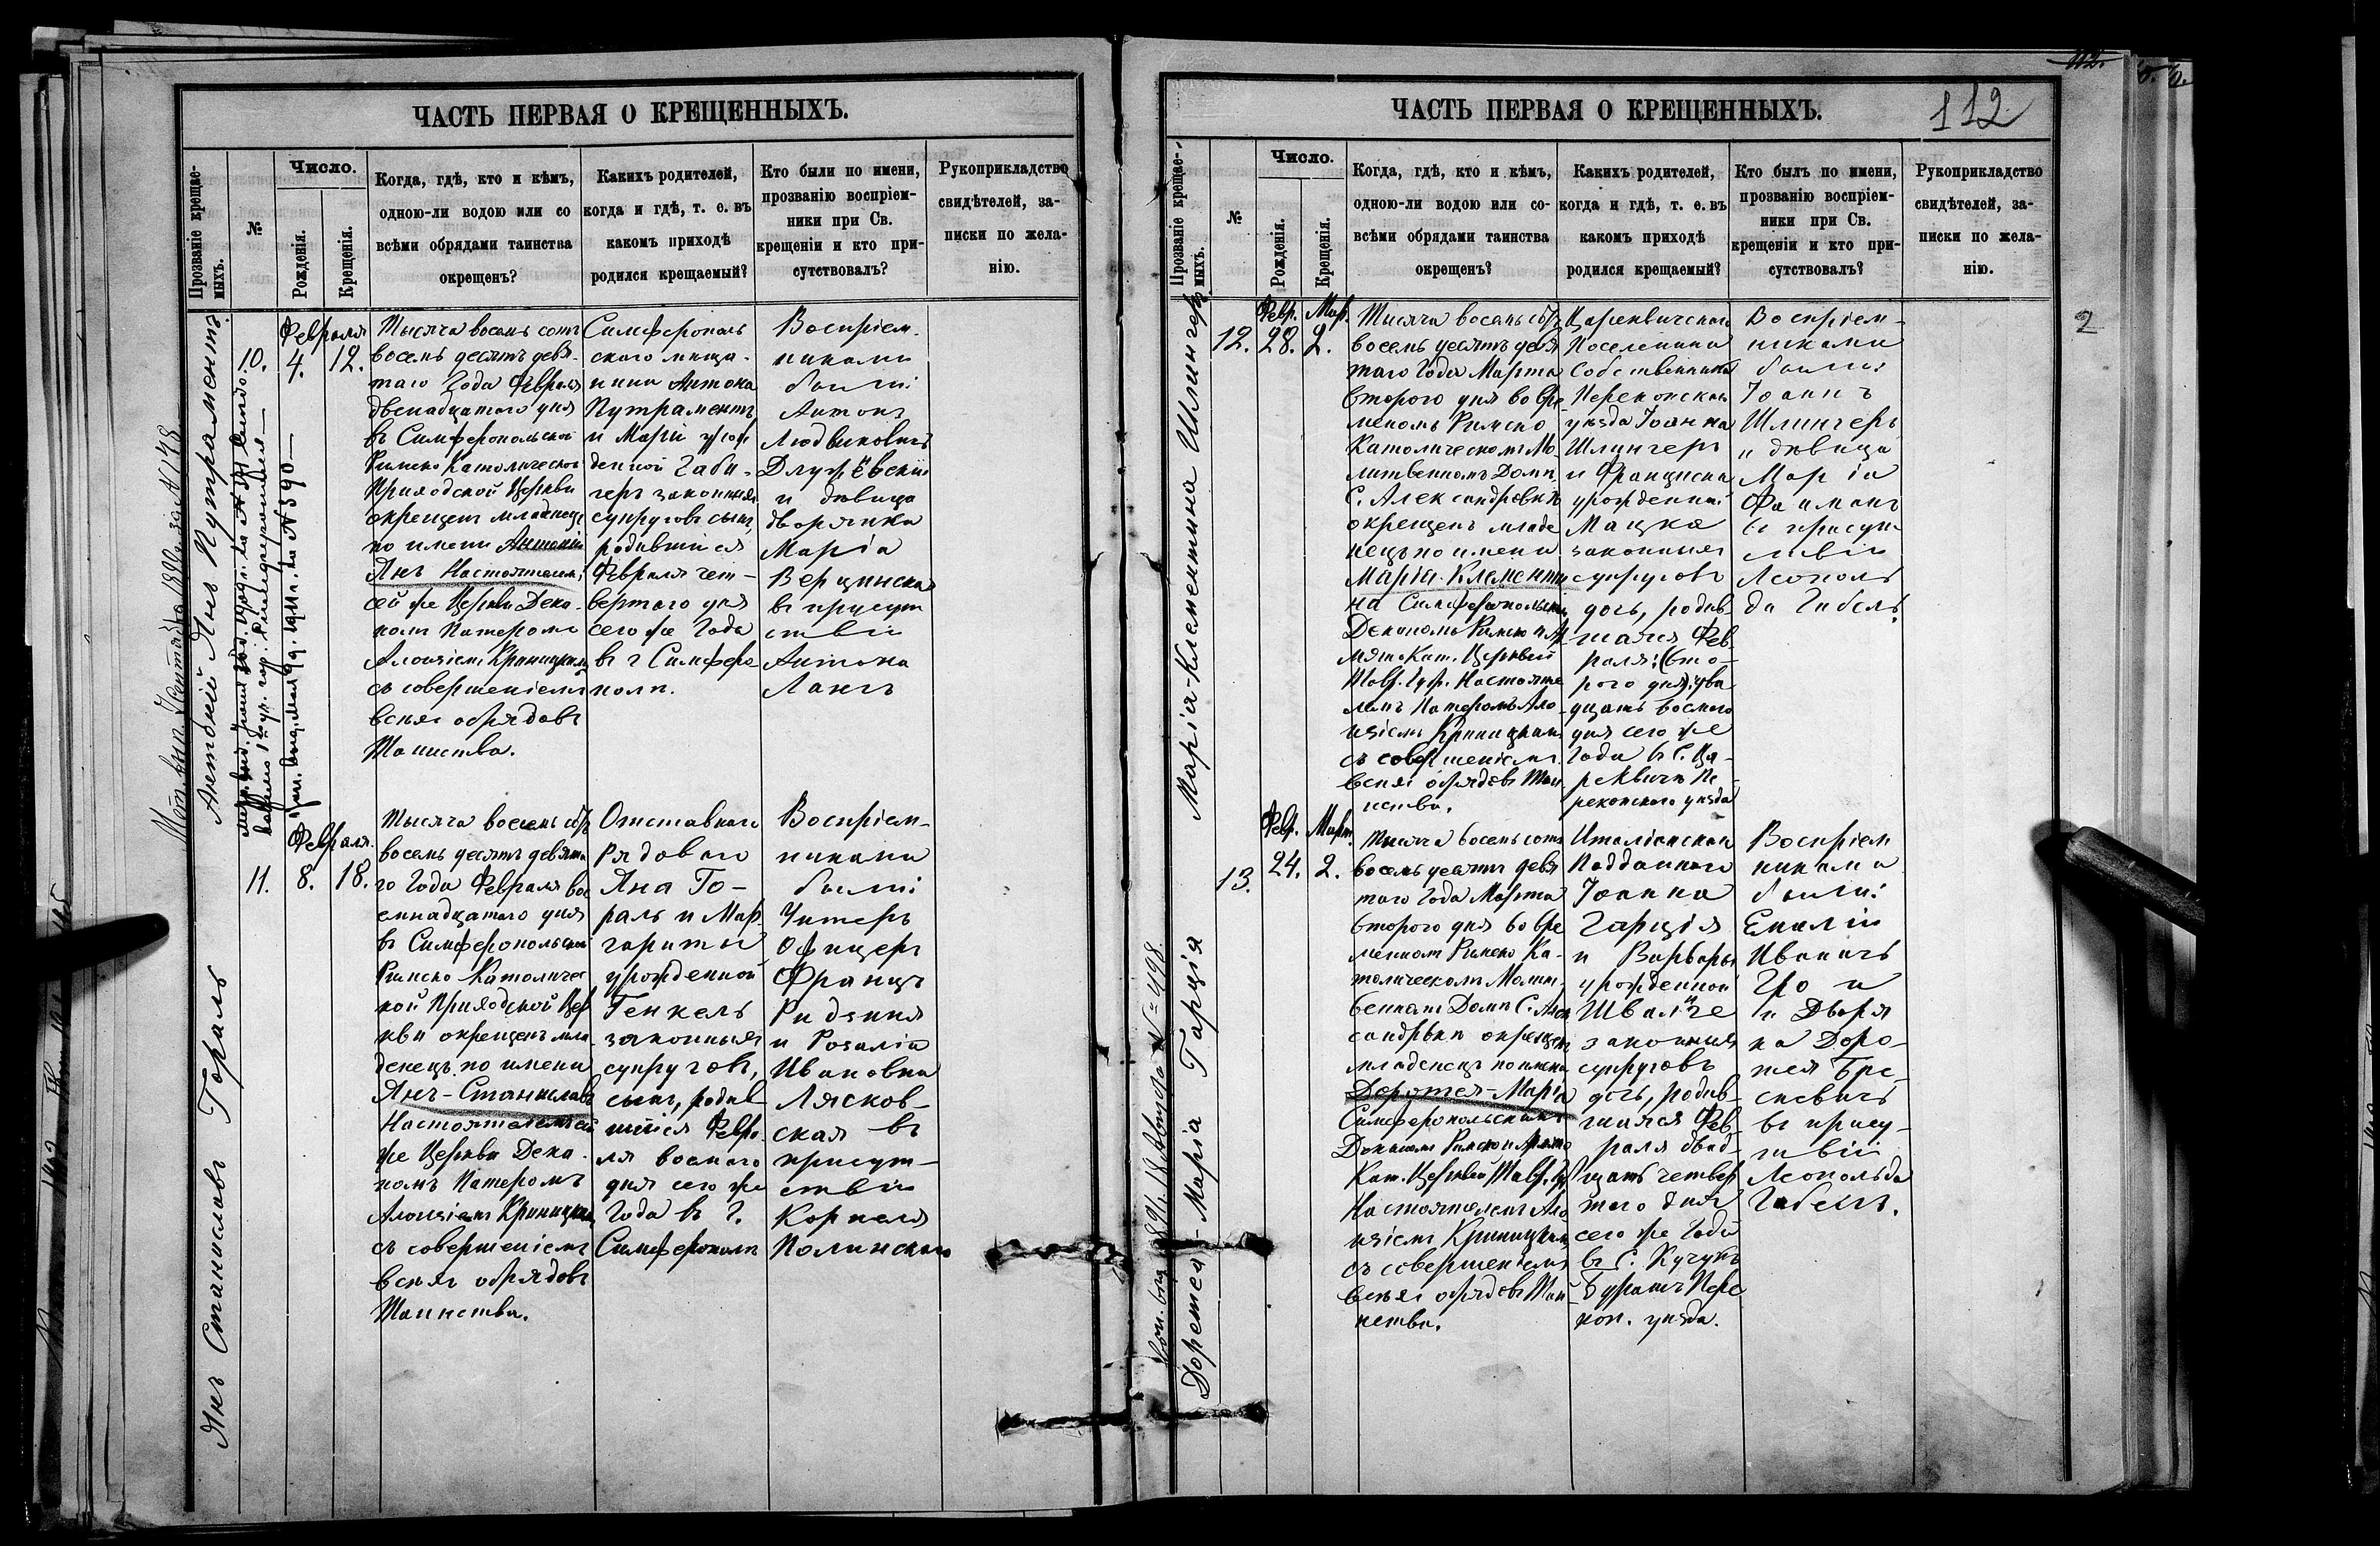 ЧАСТЬ ПЕРВАЯ О КРЕЩЕННЫХЪ.
Прозваніе крещае-
мыхъ.
№
Число.
Рожденія.
Крещенія.
Когда, гдѣ, кто и кѣмъ,
одною-ли водою или со
всѣми обрядами таинства
окрещенъ?
Какихъ родителей,
когда и гдѣ, т. е. въ
какомъ приходѣ
родился крещаемый?
Кто были по имени,
прозванію воспріем-
ники при Св.
крещеніи и кто при-
сутствовалъ?
Рукоприкладство
свидѣтелей, за-
писки по жела-
нію.
Антоній Янъ Путраментъ
10.
Февраля
4.
12.
Тысяча восемь сотъ
восемь десятъ девя-
таго Года Февраля
двенадцатого дня
въ Симферопольской
Римско Католической
Приходской Церкви
окрещенъ младенецъ
по имени Антоній
Янъ Настоятелемъ
сей же Церкви Дека-
номъ Патеромъ
Алоизіемъ Криницкимъ
съ совершеніемъ
всехъ обрядовъ
Таинства.
Симферополь
скаго меща-
нина Антона
Путраментъ
и Маріи урож
денной Габи-
геръ законныхъ
супруговъ сынъ,
родившійся
Февраля чет-
вертого дня
сего же Года
въ г Симферо
поле.
Воспріем-
никами
были:
Антонъ
Людвиковичъ
Длужевскій
и девица
дворянка
Марія
Верцинская
въ присут
ствіи
Антона
Лангъ
Янъ Станиславъ Гораль
11.
Февраля.
8.
18.
Тысяча восемь сотъ
восемь десятъ девята
го Года Февраля вос
емнадцатого дня
въ Симферопольской
Римско Католичес
кой Приходской Цер
кви окрещенъ мла
денецъ по имени
Янъ-Станиславъ
Настоятелемъ сей
же Церкви Дека-
номъ Патеромъ
Алоизіемъ Криницкимъ
съ совершеніемъ
всехъ обрядовъ
Таинства.
Отставнаго
Рядового
Яна Го-
раль и Мар
гариты
урожденной
Генкель
законныхъ
супруговъ,
сынъ, родив
шійся Февра
ля восмого
дня сего же
Года въ г.
Симферополе
Воспріем-
никами
были:
Унтеръ
Офицеръ
Францъ
и Розалія
Ивановна
Лясков-
ская въ
присут-
ствіи
Корнеля
Полинского
ЧАСТЬ ПЕРВАЯ О КРЕЩЕННЫХЪ.
112
Прозваніе крещае-
мыхъ.
№
Число.
Рожденія.
Крещенія.
Когда, гдѣ, кто и кѣмъ,
одною-ли водою или со-
всѣми обрядами таинства
окрещенъ?
Какихъ родителей,
когда и гдѣ, т. е. въ
какомъ приходѣ
родился крещаемый?
Кто былъ по имени,
прозванію воспріем-
ники при Св.
крещеніи и кто при-
сутствовалъ?
Рукоприкладство
свидѣтелей, за-
писки по жела-
нію.
2
Марія-Клементина Шлингеръ
12.
Февр.
28.
Мар.
2.
Тысяча восемь сотъ
восемь десятъ девя
таго Года Марта
второго дня во вре
менномъ Римско
Католическомъ Мо
литвенномъ Доме
С. Александровкѣ
окрещенъ младе
нецъ по имени
Марія-Клементи
на Симферопольскимъ
Деканомъ Римско и Ар
мяно-Кат. Церквей
Тавр. Губ. Настояте
лемъ Патеромъ Ало
изіемъ Криницкимъ
съ совершеніемъ
всехъ обрядовъ Таи
нства.
Царевичскаго
Поселенина
Собственника
Перекопскаго
уезда Іоанна
Шлингеръ
и Франциски
урожденной
Мацко
законныхъ
супруговъ
дочь, родив
шаяся Фев
раля (вто-
рого дня) два
дцать восмого
дня сего же
Года въ С. Ца-
реквичъ Пе-
рекопского уезда
Воспріем-
никами
были:
Іоаннъ
Шлингеръ
и девица
Марія
Фаиманъ
въ присут
ствіи
Леополь
да Гибель
Доротея-Марія Гарція
13.
Февр.
24.
Март.
2.
Тысяча восемь сотъ
восемь десятъ девя
таго Года Марта
второго дня во вре
менномъ Римско Ка-
толическомъ Молит
венномъ Доме С. Алек
сандровке окрещенъ
младенецъ по имени
Доротея-Марія
Симферопольскимъ
Деканомъ Римско и Армяно
Кат. Церквей Тавр. Губ
Настоятелемъ Ало
изіемъ Криницкимъ
съ совершеніемъ
всехъ обрядовъ Таи
нства.
Италіанскаго
Подданнаго
Іоанна
Гарція
и Варвары
урожденной
законныхъ
супруговъ
дочь, родив-
шаяся Фев
раля двад-
цать четвер
того дня
сего же Года
въ С. Кучукъ
Бурашъ Пере
коп. уезда.
Воспріем
никами
были:
Емилій
Ивановъ
Гро и
Дворя
ка Доро-
тея
въ присут-
ствіи
Леопольда
Габель.